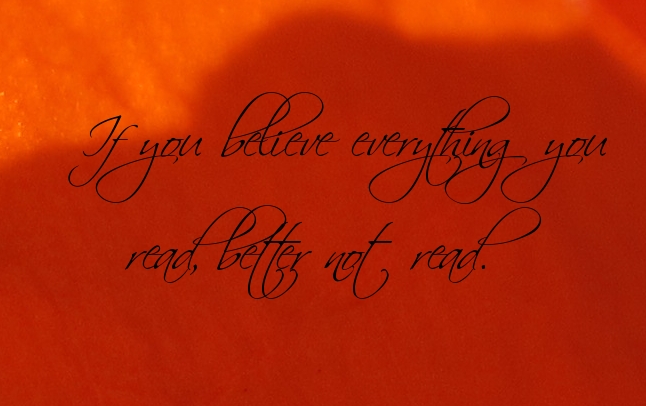 If you believe everything you
read, better not read.